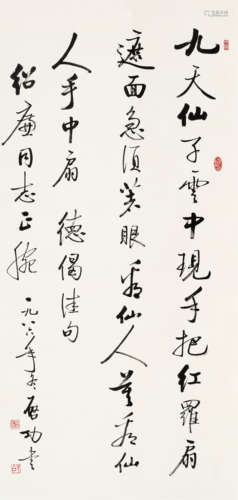 九天仙子云中现手把红罗扇
遮面急须著眼看仙人莫看仙
人手中扇 德偈佳句
绍廉同志正腕 一九八六年冬 启功书